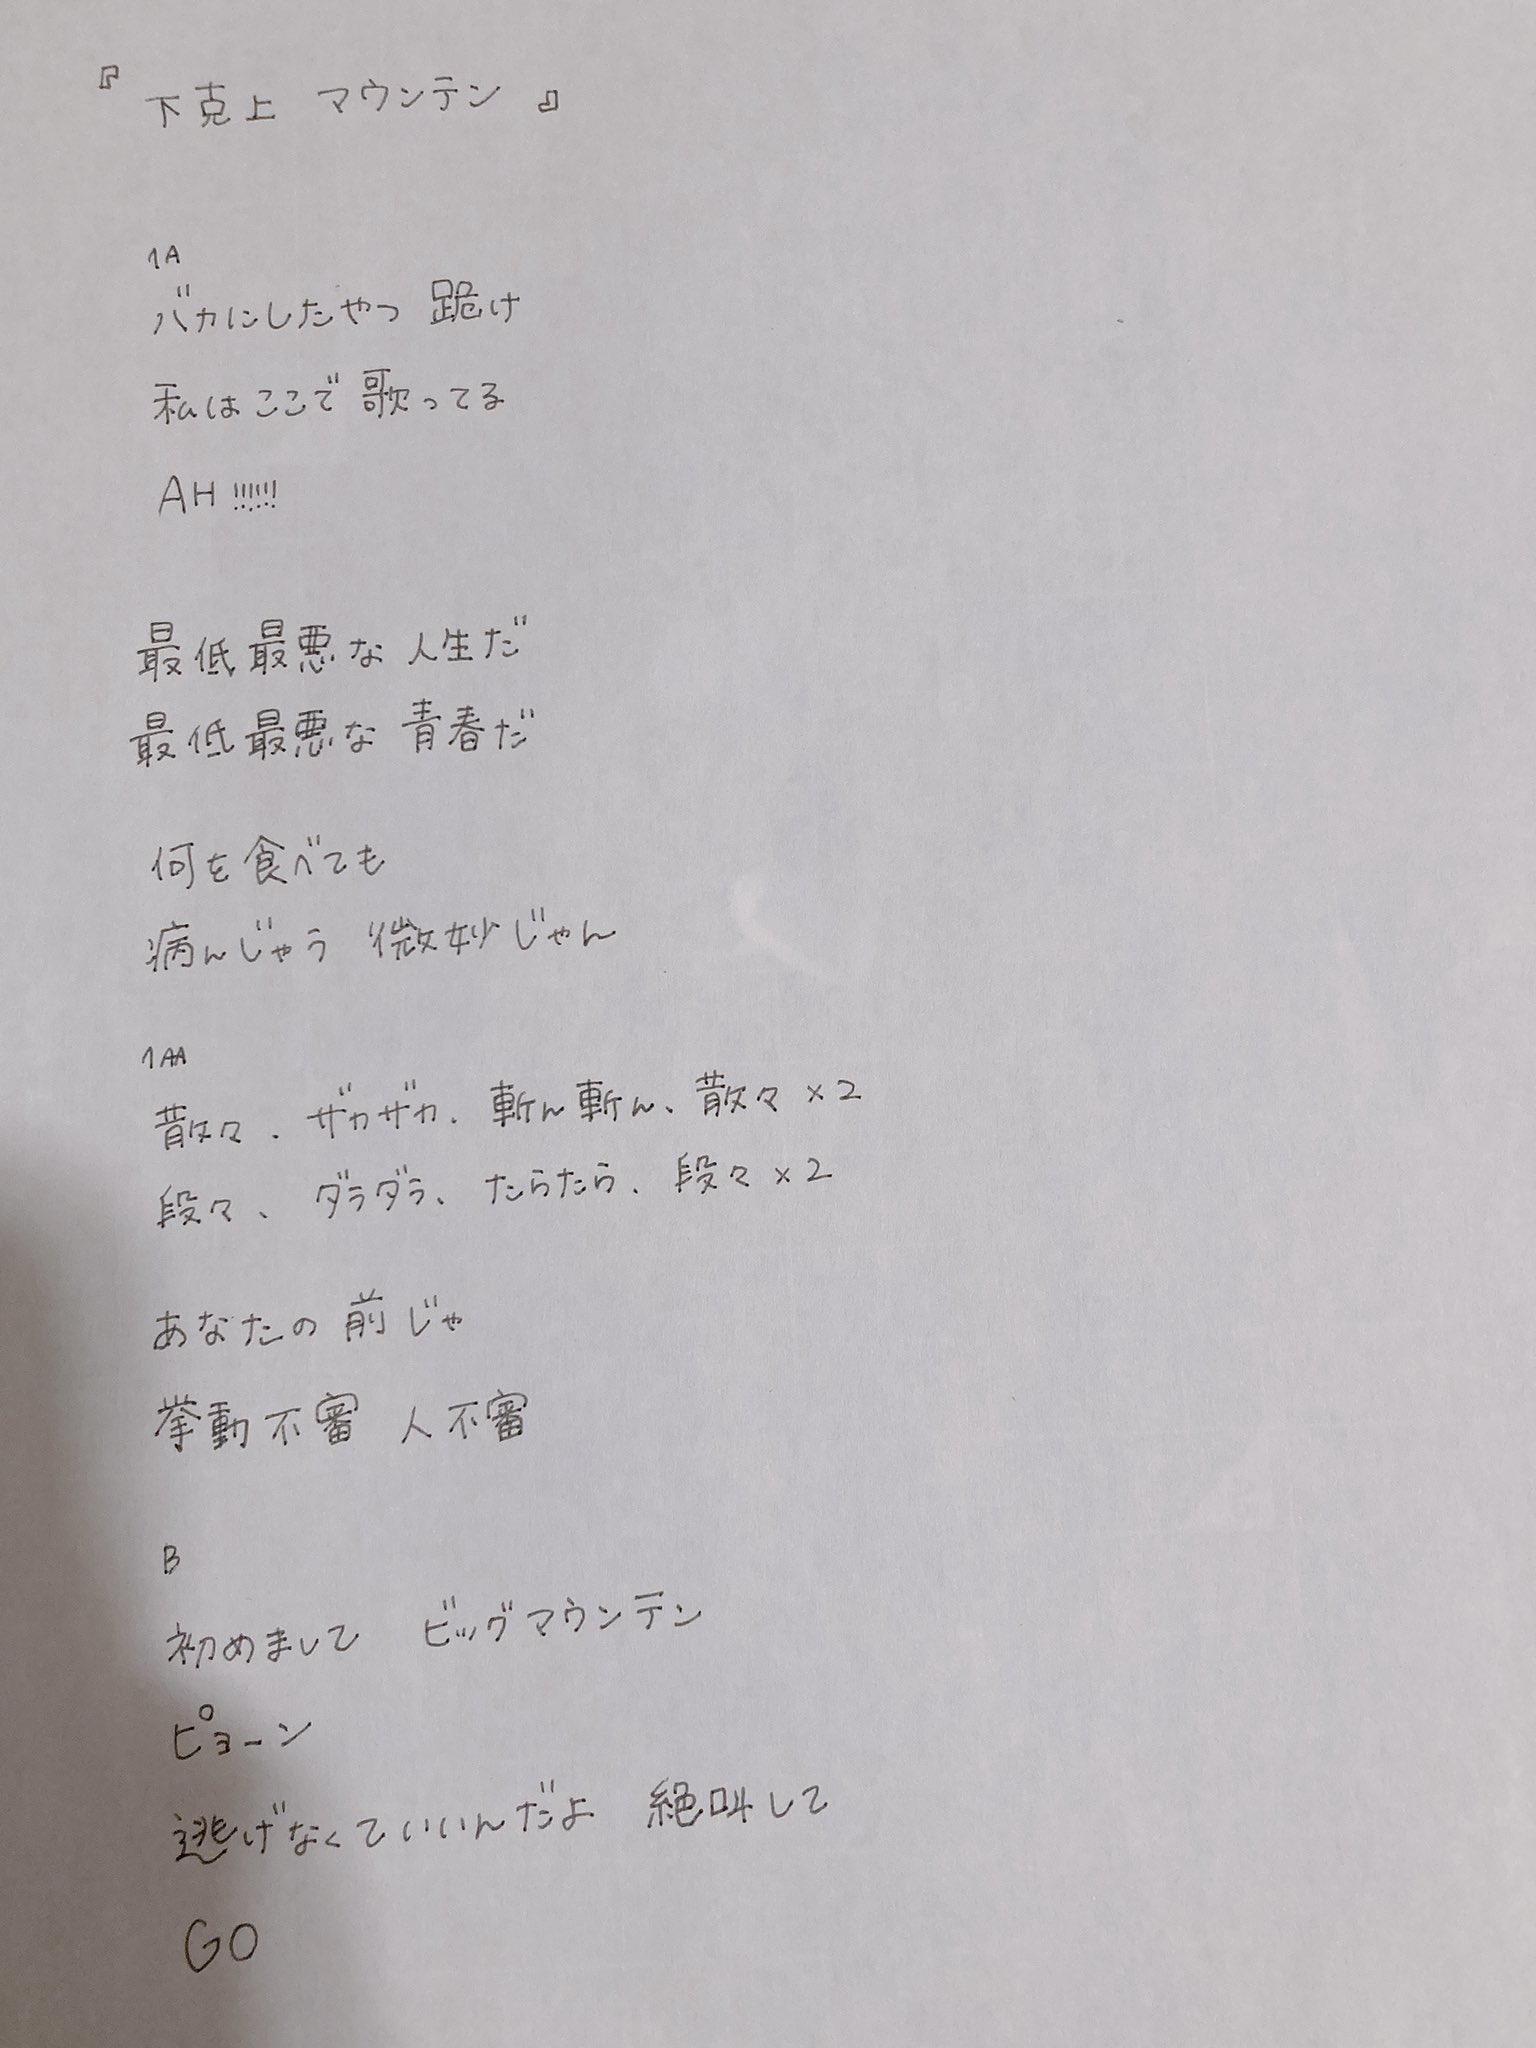 『下克上 マウンテン』
1A
バカにしたやつ 跪け
私はここで歌ってる
AH!!!!!!
最低最悪な人生だ
最低最悪な青春だ
何を食べても
病んじゃう 微妙じゃん
1AA
散々、ザカザカ、斬ん斬ん、散々×2
段々、ダラダラ、たらたら、段々×2
あなたの前じゃ
挙動不審 人不審
B
初めまして ビッグマウンテン
ピョーン
逃げなくていいんだよ 絶叫して
GO